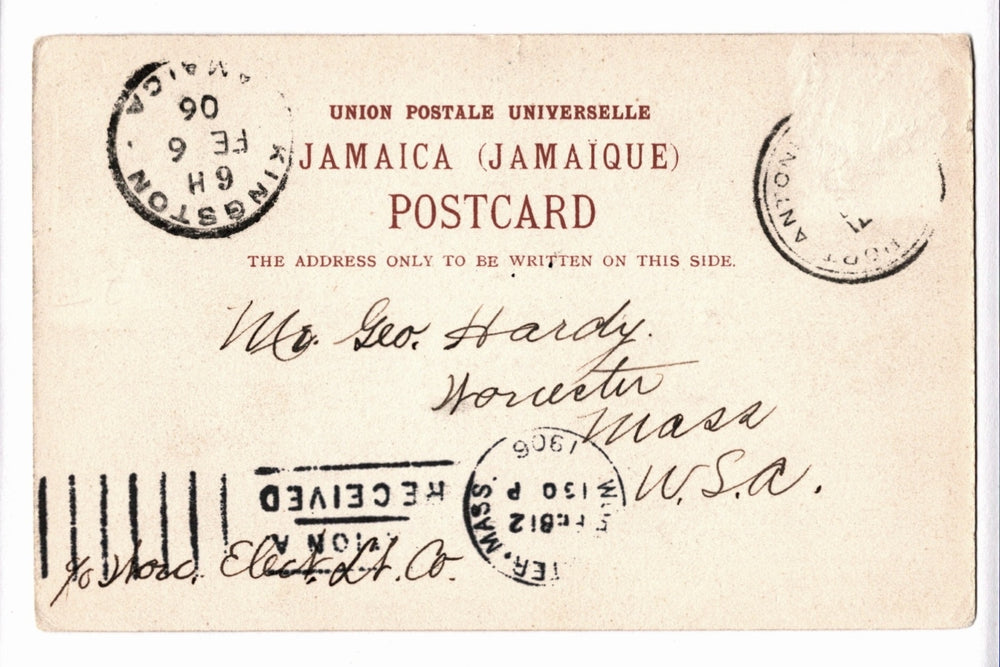 KINGSTON . JAMAICA
6 H
FE 6
06
UNION POSTALE UNIVERSELLE
JAMAICA (JAMAÏQUE)
POSTCARD
THE ADDRESS ONLY TO BE WRITTEN ON THIS SIDE.
PORT ANTONIO
Mr. Geo. Hardy.
Worcester
Mass
U.S.A.
TER, MASS.
FEB 12
1 30 P M
1906
RECEIVED
c/o Worc. Elect. Lt. Co.